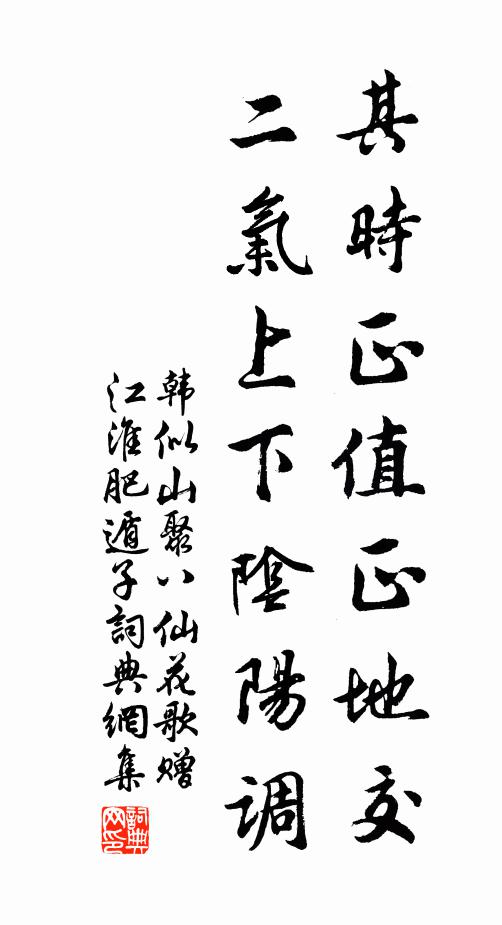 其時正值正地交
二氣上下陰陽調
韩似山聚八仙花歌赠
江淮肥遁子詞典網集
詞典网印